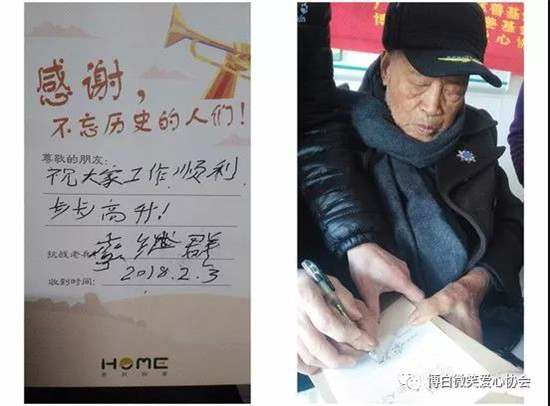 感谢，
不忘历史的人们！
尊敬的朋友：
祝大家工作顺利
步步高升！
抗战老兵：李继群
收到时间：2018.2.3
HOME
老兵回家
善基
博 善基
博白微笑爱心协会